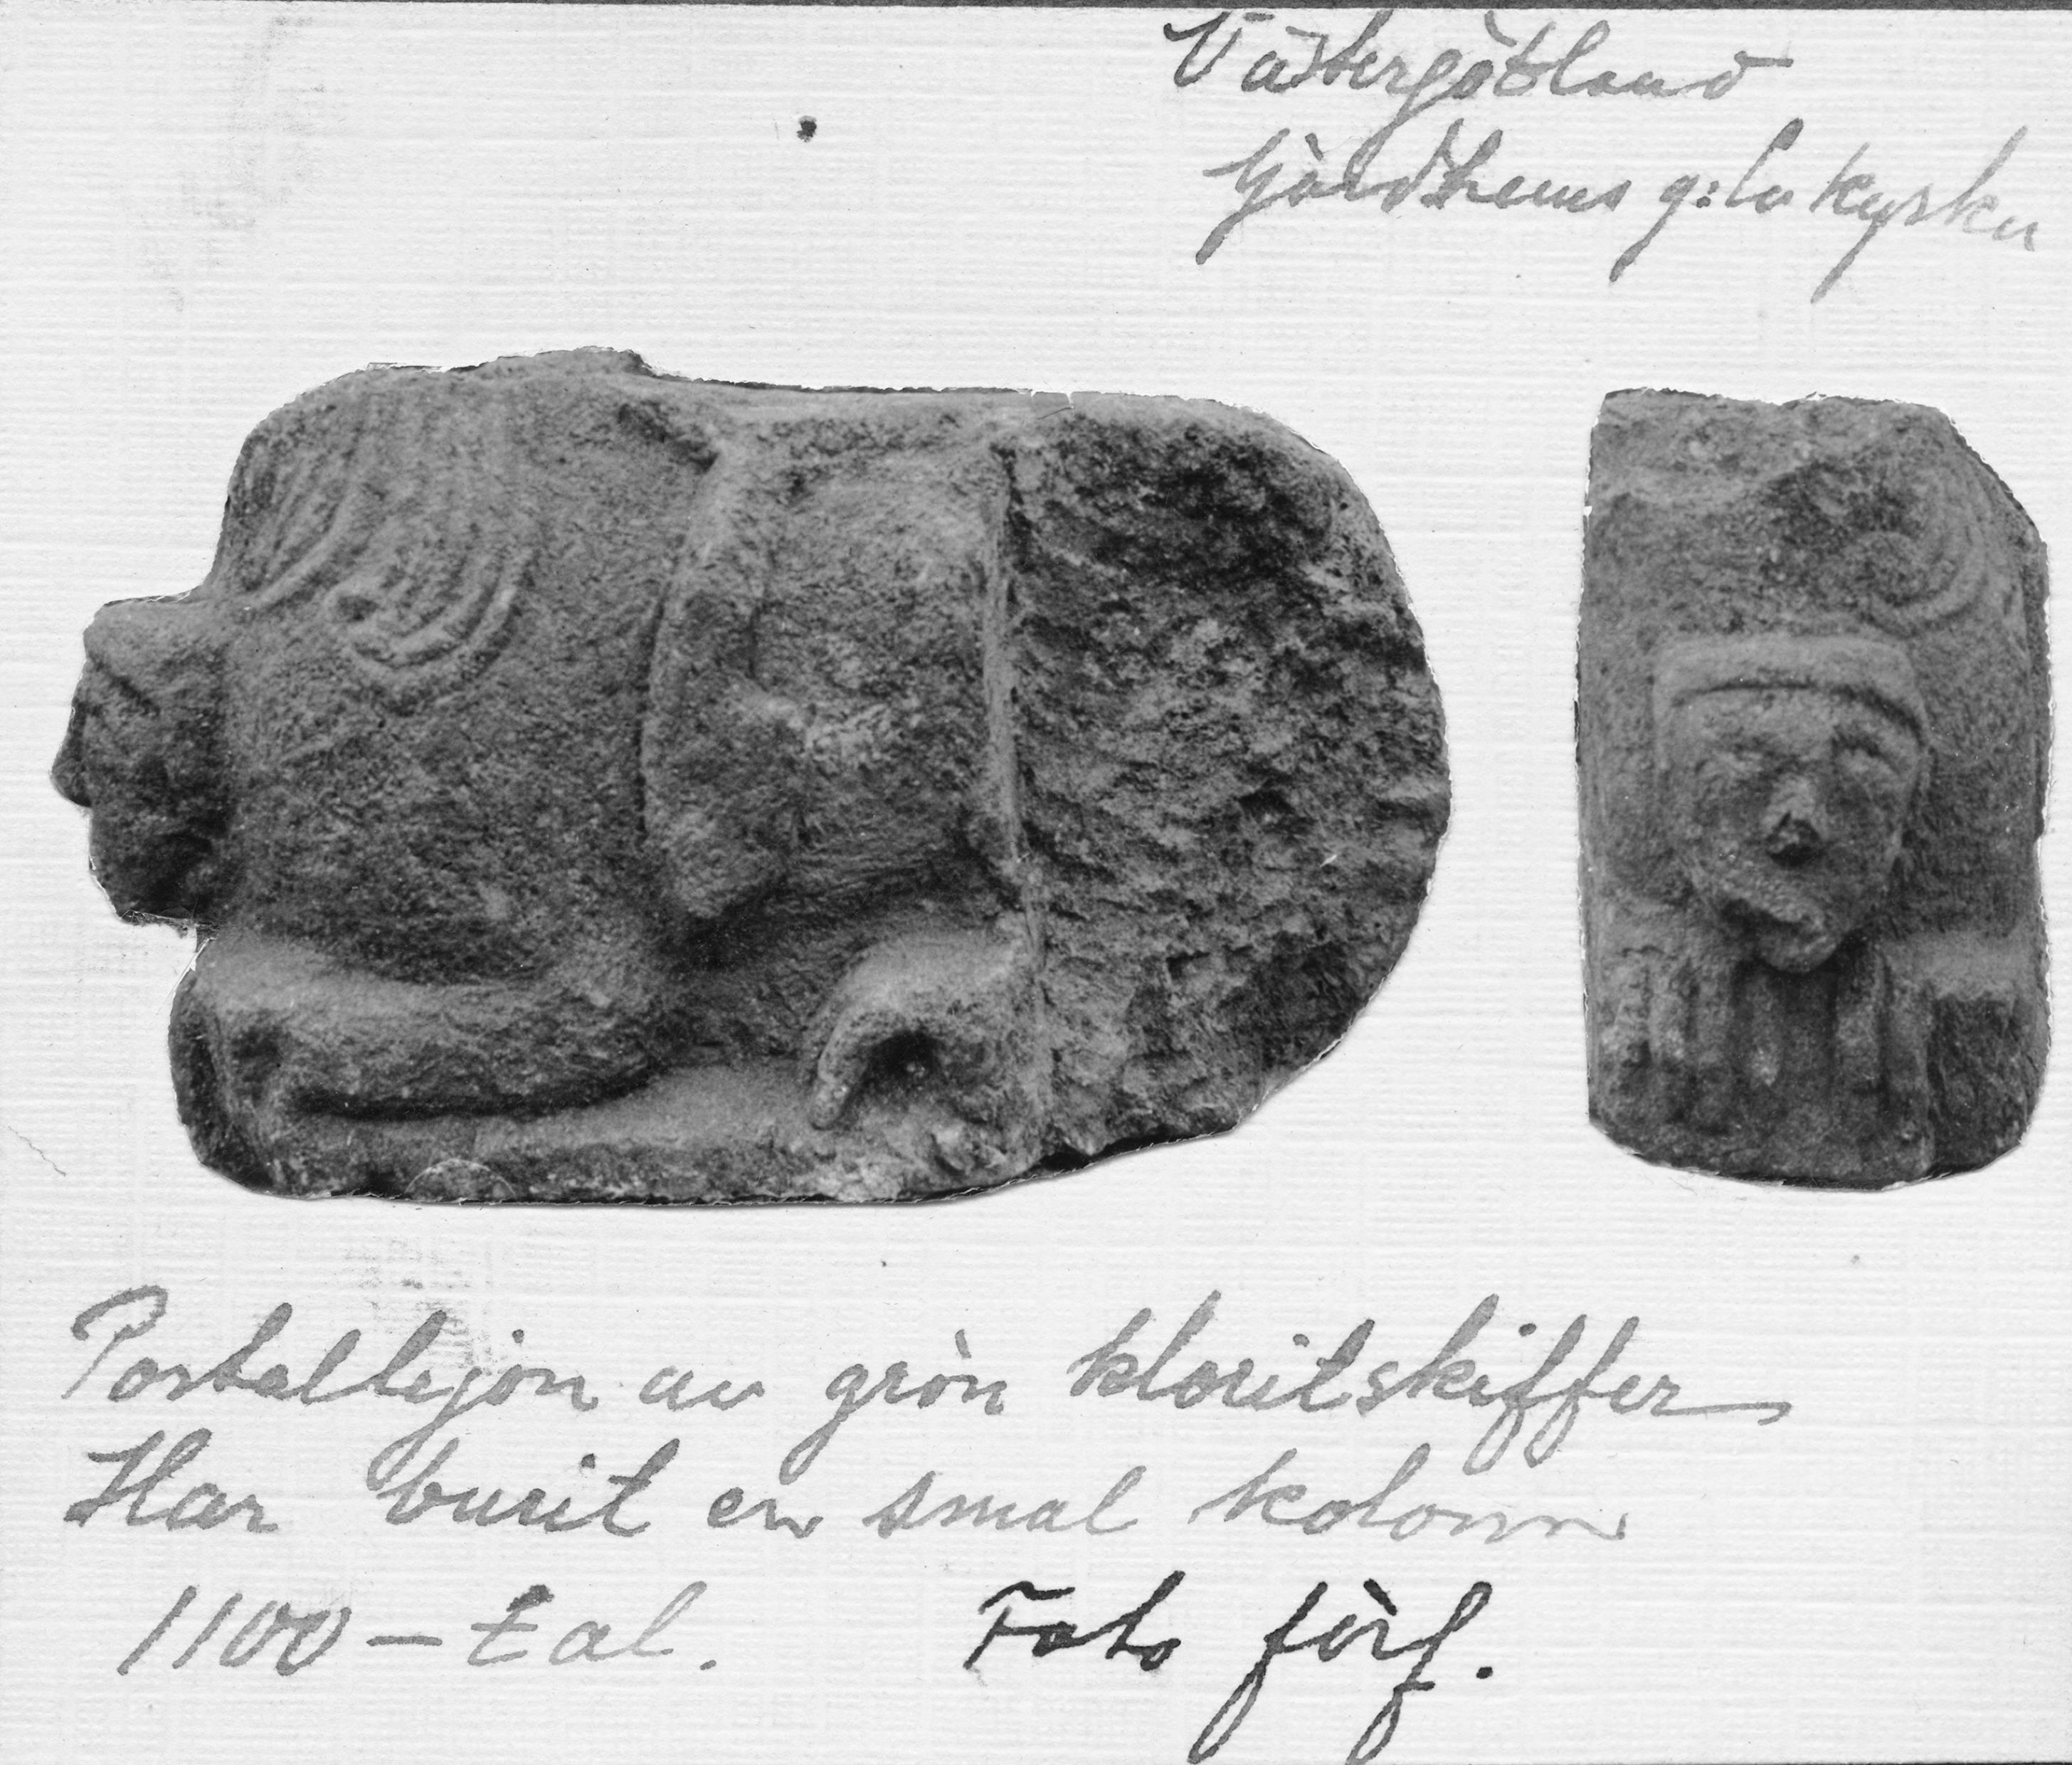 Västergötland
Gärdhems g:la kyrka
Portallejon av grön kloritskiffer
Har burit en smal kolonn
1100-tal.
Foto förf.